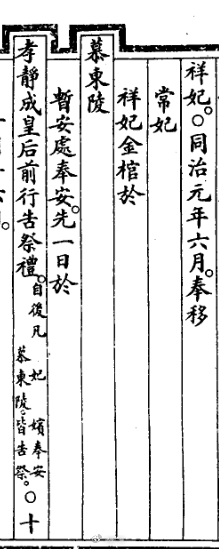 祥妃。○同治元年六月。奉移
常妃
祥妃金棺於
慕東陵
暫安處奉安。先一日於
孝靜成皇后前行告祭禮。自後凡妃嬪奉安慕東陵。皆告祭。○十